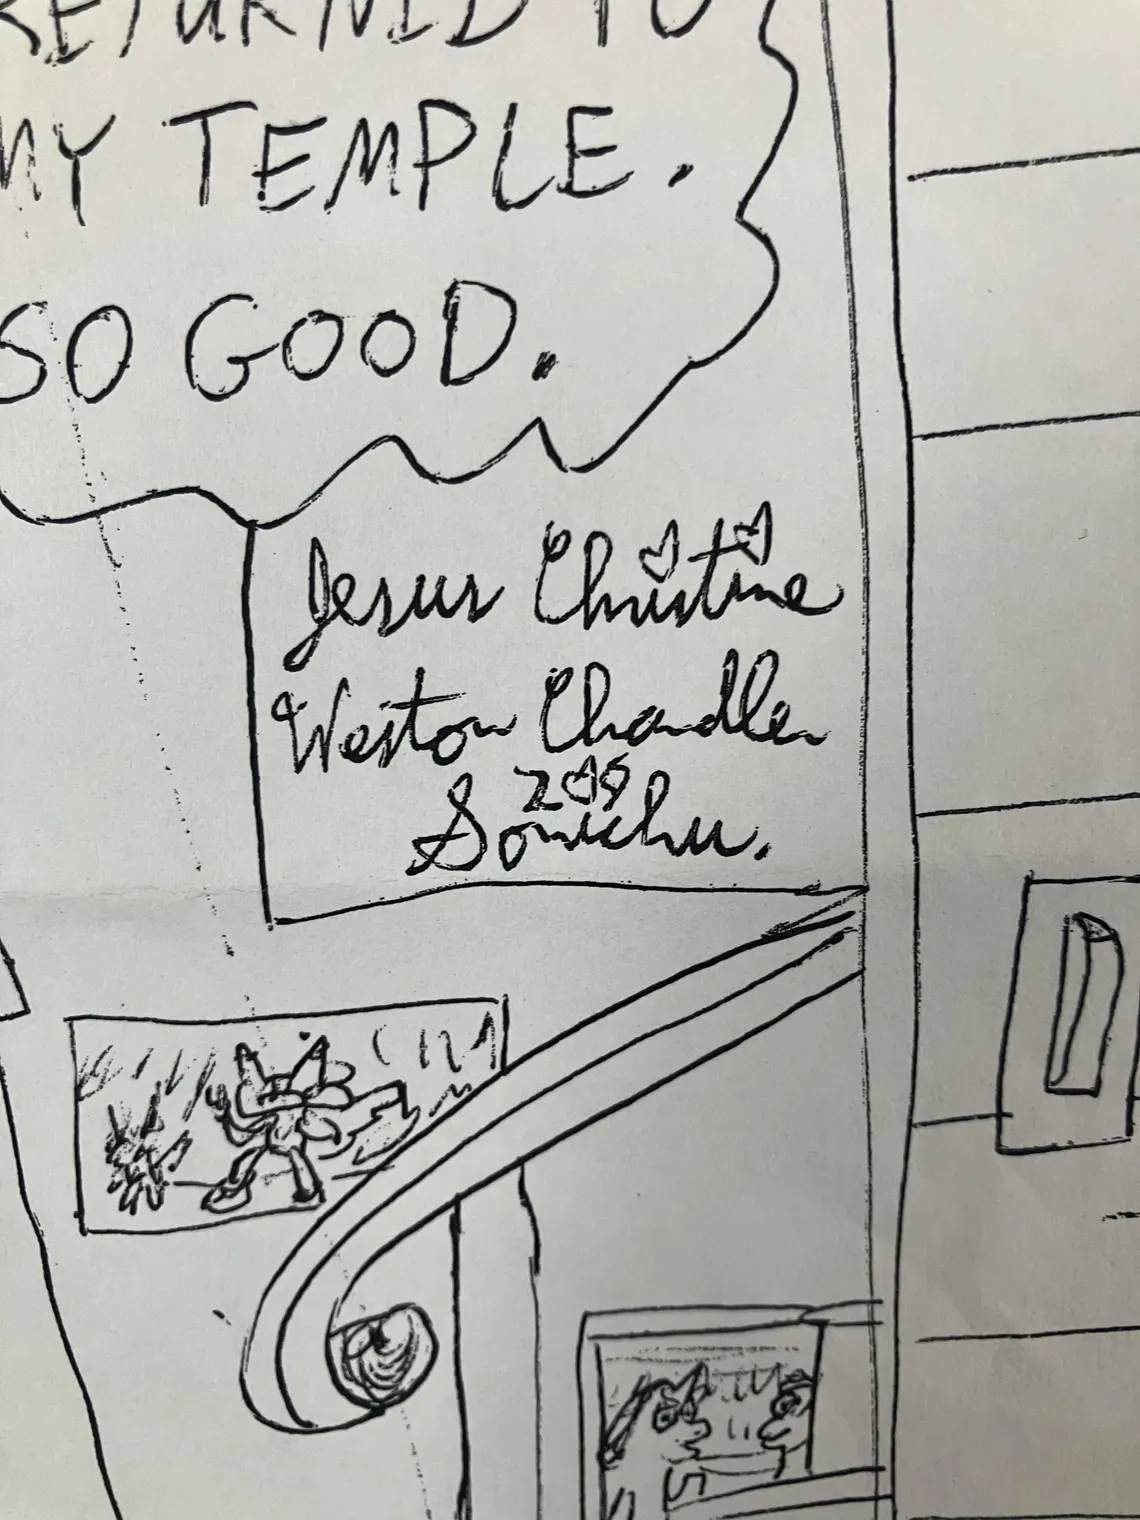 RETURNED TO
MY TEMPLE.
SO GOOD.
Jesus Christine
Weston Chandler
Sonichu.